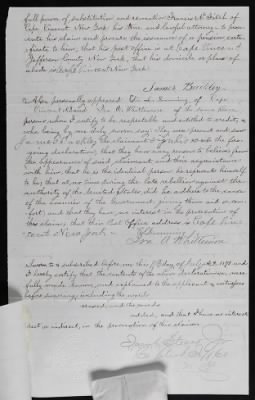 full power of substitution and revocation Francis A. Fitch of
Cape Vincent New York his true and lawful attorney to prose
cute his claim and procure the issuance of a pension certi-
ficate to him, that his post office is at Cape Vincent
Jefferson County New York, that his domicile or place of
abode is Cape Vincent New York
James Buckley
Also personally appeared Edward Dunning, of Cape
Vincent and Ira A. Whittemore of the same place
persons whom I certify to be respectable and entitled to credit, &
who being by me duly sworn say: They were present and saw
James Buckley the claimant sign the
foregoing declaration; that they have every reason to believe from
the appearance of said claimant and their acquaintance
with him, that he is the identical person he represents himself
to be; that at no time during the late rebellion against the
authority of the United States did he adhere to the cause
of the enemies of the Government giving them aid or com-
fort; and that they have no interest in the prosecution of
this claim; that their Post Office address is Cape Vin-
cent New York
Dunning
Ira A Whittemore
Sworn to & subscribed before me this day of
I hereby certify that the contents of the above declaration, were
fully made known, and explained to the applicant & witnesses
before swearing, including the words
erased, and the words
added, and that I have no interest
direct or indirect, in the prosecution of this claim